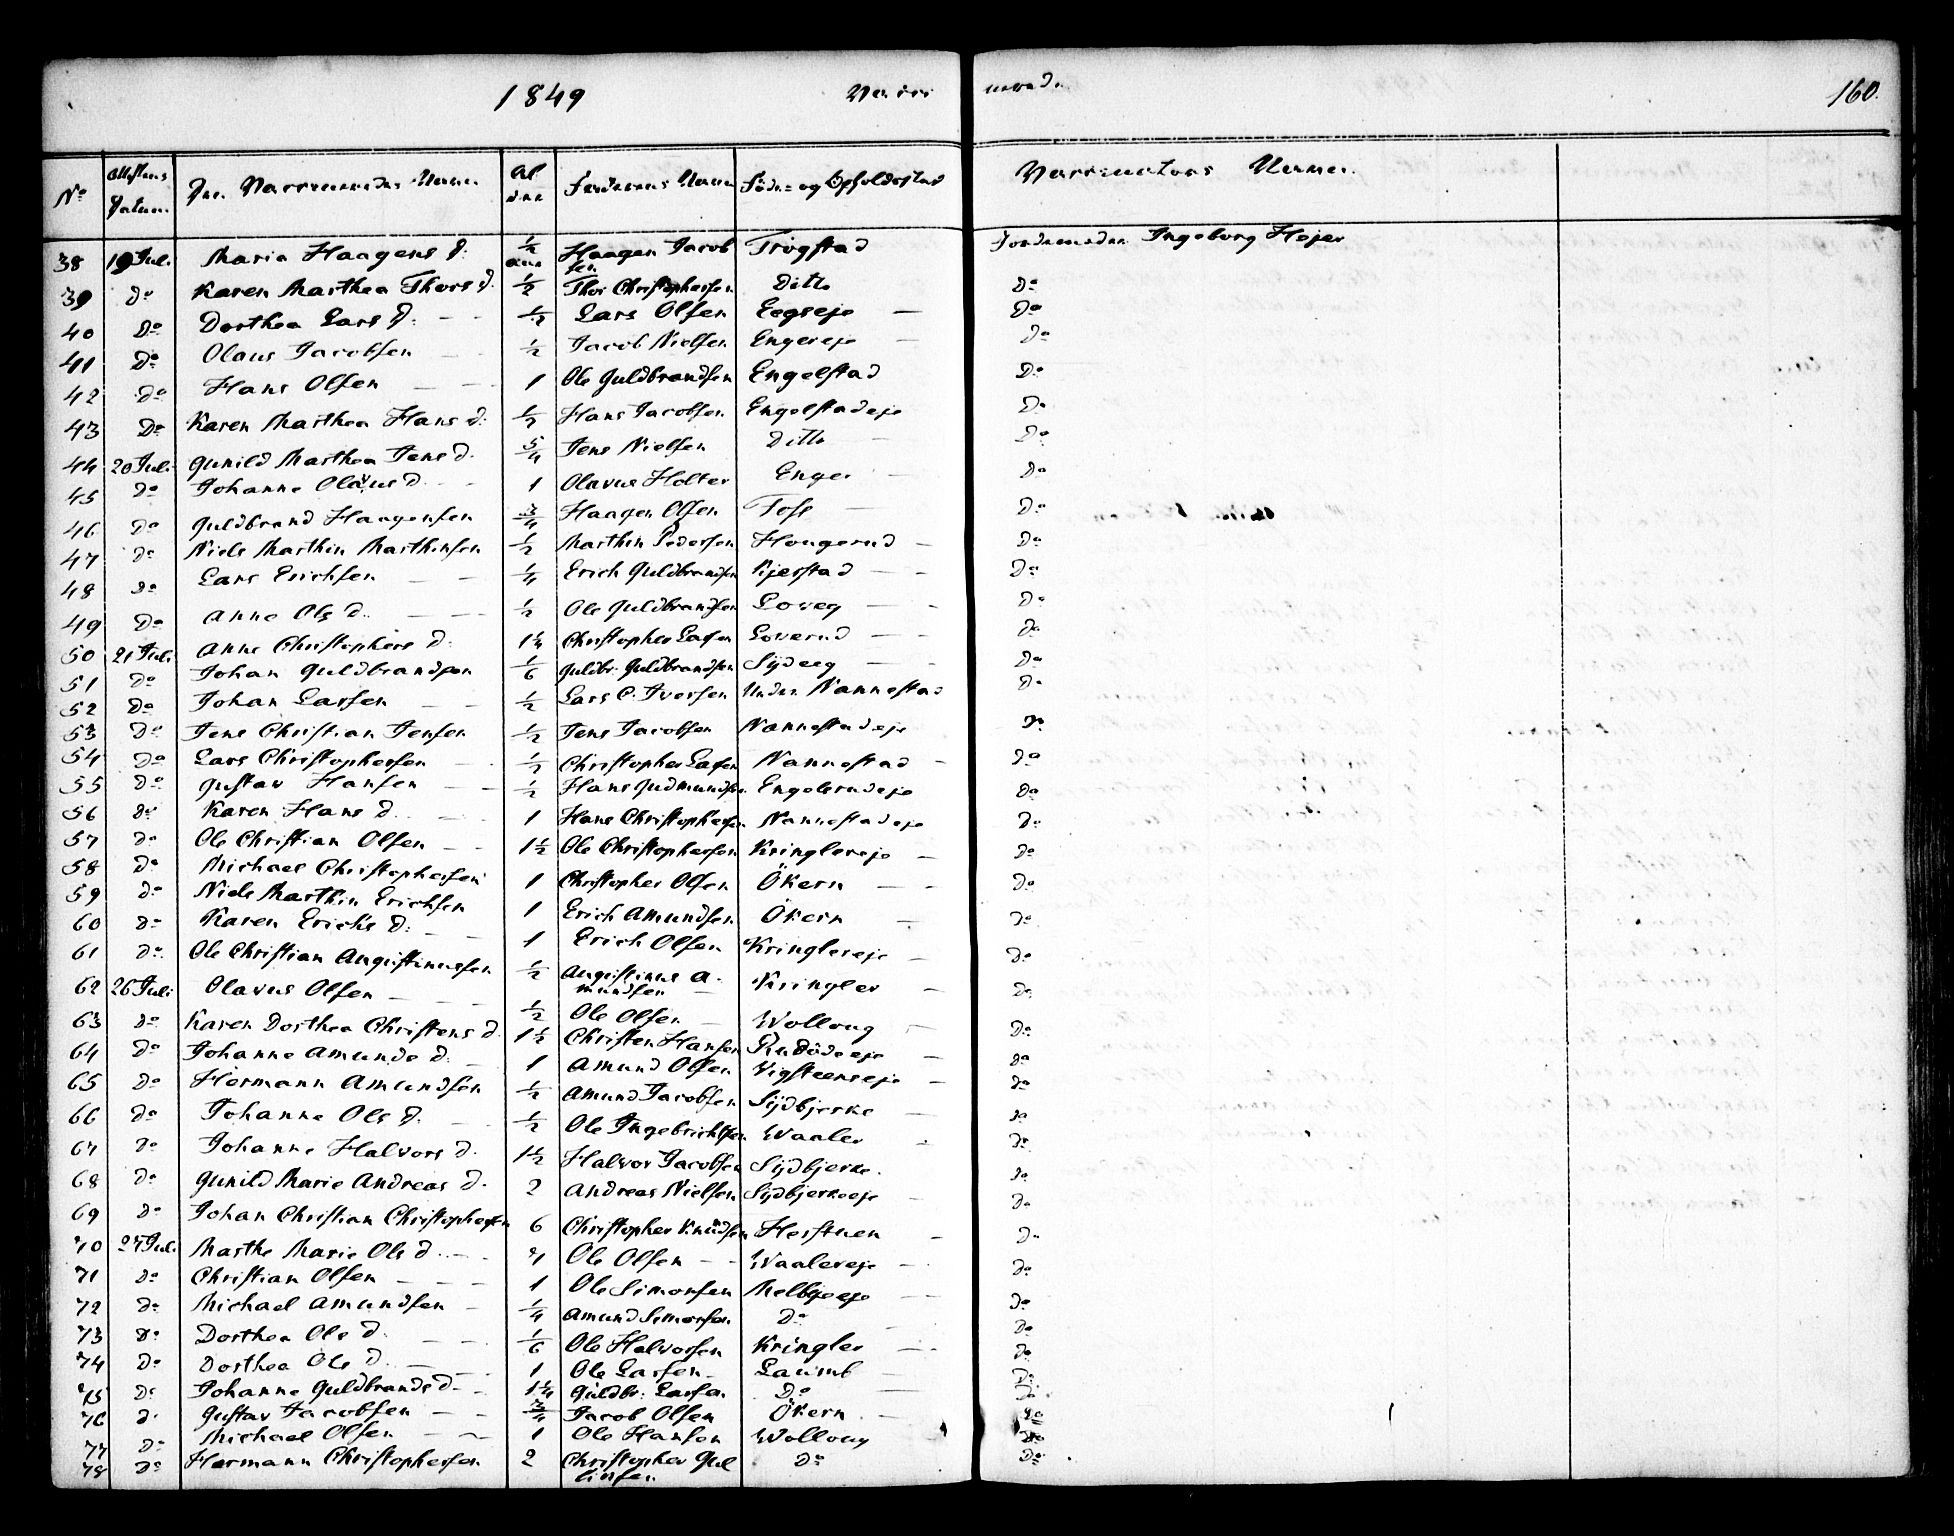 1849 Vacci nerede. 160.
No Attestens Datum. Den Vaccineredes Navn. Alder Faderens Navn Föde- og Opholdssted Vaccinateurs Navn.
38 19 Juli Maria Haagens D. 1/2 aar Haagen Jacobsen Trögstad Jordemoder Ingeborg Hejer
39 Do Karen Marthea Thors D. 1/2 Thor Christophersen Ditto Do
40 Do Dorthea Lars D. 1/2 Lars Olsen Eegseje Do
41 Do Olaus Jacobsen 1/2 Jacob Nielsen Engereje Do
42 Do Hans Olsen 1 Ole Guldbrandsen Engelstad Do
43 Do Karen Marthea Hans D. 1/2 Hans Jacobsen Engelstadeje Do
44 20 Juli Gunild Marthea Jens D. 5/4 Jens Nielsen Ditto Do
45 Do Johanne Olavus D. 1 Olavus Holter Enger Do
46 Do Guldbrand Haagensen 3/4 Haagen Olsen Foss Do
47 Do Niels Marthin Marthinsen 1/2 Marthin Pedersen Hougerud Do
48 Do Lars Erichsen 1/4 Erich Guldbrandsen Kjerstad Do
49 Do Anne Ols D. 1/2 Ole Guldbrandsen Loveg Do
50 21 Juli Anne Christophers D. 1 1/2 Christopher Larsen Loverud Do
51 Do Johan Guldbrandsen 1/6 Guldbr. Guldbrandsen Sydeeg Do
52 Do Johan Larsen 1/2 Lars C. Iversen Under Nannestad Do
53 Do Jens Christian Jensen 1/2 Jens Jacobsen Nannestadeje Do
54 Do Lars Christophersen 1/2 Christopher Larsen Nannestad Do
55 Do Gustav Hansen 1/2 Hans Gudmundsen Engelsrudeje Do
56 Do Karen Hans D. 1 Hans Christophersen Nannestadeje Do
57 Do Ole Christian Olsen 1 1/2 Ole Christophersen Kringlereje Do
58 Do Michael Christophersen 1 Christopher Olsen Ökern Do
59 Do Niels Marthin Erichsen 1 Erich Amundsen Ökern Do
60 Do Karen Erichs D. 1 Erich Olsen Kringlereje Do
61 Do Ole Christian Augustinussen 1/2 Augustinus Amundsen Kringler Do
62 26 Juli Olavus Olsen 1/2 Ole Olsen Wolloug Do
63 Do Karen Dorthea Christens D. 1 1/2 Christen Hansen Rudödeeje Do
64 Do Johanne Amunds D. 1 Amund Olsen Vigsteenseje Do
65 Do Hermann Amundsen 1/2 Amund Jacobsen Sydbjerke Do
66 Do Johanne Ols D. 1/2 Ole Ingebrichtsen Waaler Do
67 Do Johanne Halvors D. 1 1/2 Halvor Jacobsen Sydbjerke Do
68 Do Gunild Marie Andreas D. 2 Andreas Nielsen Sydbjerkeeje Do
69 Do Johan Christian Christophersen 6 Christopher Knudsen Herstuen Do
70 27 Juli Marthe Marie Ols D. Ole Olsen Waalereje Do
71 Do Christian Olsen 1 Ole Simonsen Melbyeeje Do
72 Do Michael Amundsen 1/4 Amund Simonsen Do Do
73 Do Dorthea Ols D. 1/6 Ole Halvorsen Kringler Do
74 Do Dorthea Ols D. 1 Ole Larsen Laumb Do
75 Do Johanne Guldbrands D. 1 1/4 Guldbr. Larsen Do Do
76 Do Gustav Jacobsen 3/4 Jacob Olsen Ökern Do
77 Do Michael Olsen 1 Ole Hansen Wolloug Do
78 Do Hermann Christophersen 2 Christopher Gullinsen Do Do